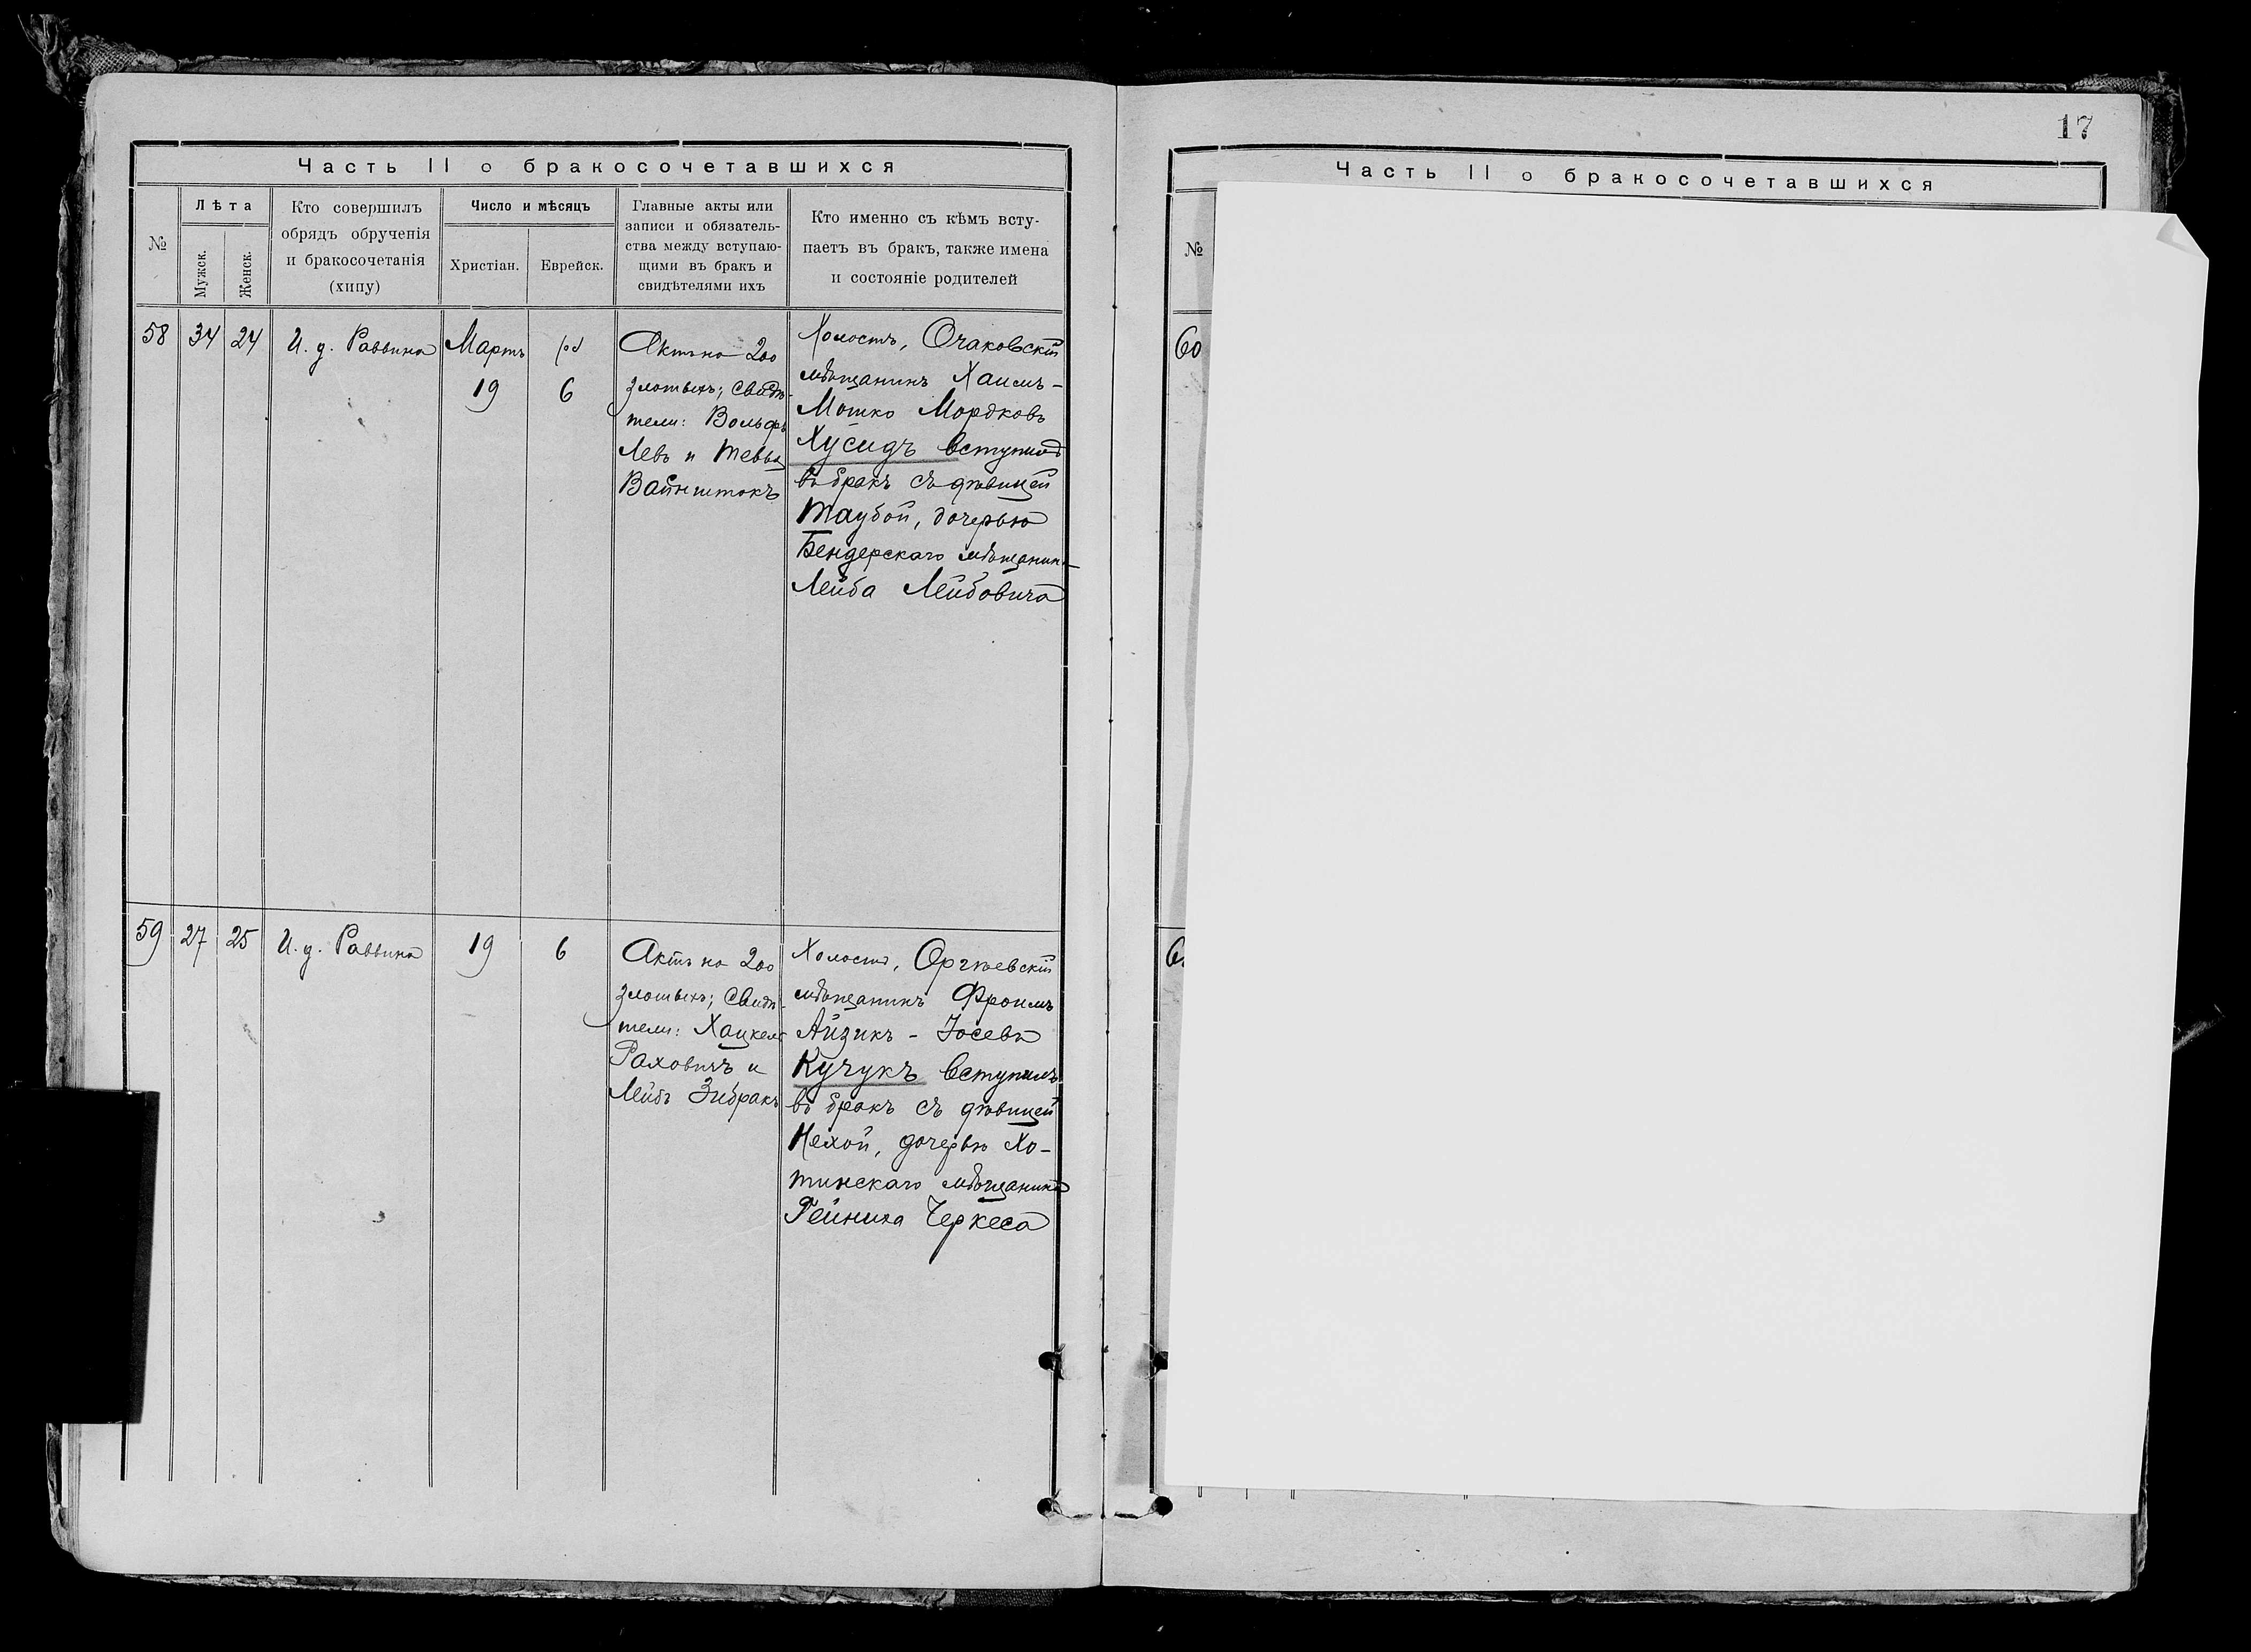 Часть II о бракосочетавшихся
№
Лѣта
Мужск.
Женск.
Кто совершилъ
обрядъ обрученія
и бракосочетанія
(хипу)
Число и мѣсяцъ
Христіан.
Еврейск.
Главные акты или
записи и обязатель-
ства между вступаю-
щими въ бракъ и
свидѣтелями ихъ
Кто именно съ кѣмъ всту-
паетъ въ бракъ, также имена
и состояніе родителей
58
34
24
И. д. Раввина
Мартъ
19
6
Актъ на 200
злотыхъ; Свидѣ-
тели: Вольфъ
Левъ и Тевья
Вайнштокъ
Холостъ, Очаковскій
мѣщанинъ Хаимъ-
Мошко Мордковъ
Хусидъ вступилъ
въ бракъ съ дѣвицей
Таубой, дочерью
Бендерскаго мѣщанина
Лейба Лейбовича
59
27
25
И. д. Раввина
19
6
Актъ на 200
злотыхъ; Свидѣ-
тели: Хацкель
Раховичъ и
Лейбъ Зибракъ
Холостъ, Оргѣевскій
мѣщанинъ Фроимъ
Айзикъ - Іосевъ
Кучукъ вступилъ
въ бракъ съ дѣвицей
Нехой, дочерью Хо-
тинскаго мѣщанина
Рейниха Черкеса
17
Часть II о бракосочетавшихся
№
60